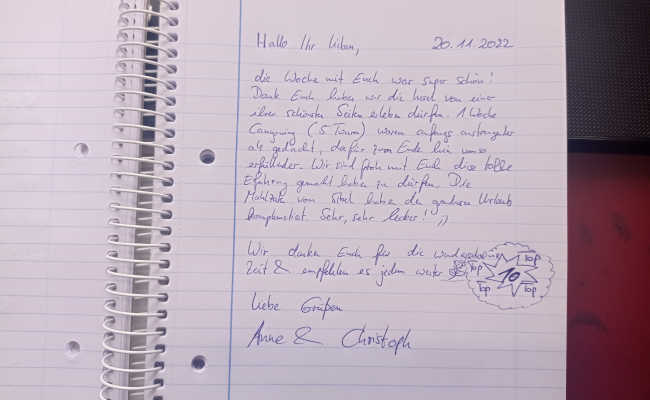 Hallo Ihr Lieben, 20.11.2022
die Woche mit Euch war super schön!
Dank Euch haben wir die Insel von einer
ihrer schönsten Seiten erleben dürfen. 1 Woche
Canyoning (5 Touren) waren anfangs anstrengender
als gedacht, dafür zum Ende hin umso
erfüllender. Wir sind froh mit Euch diese tolle
Erfahrung gemacht haben zu dürfen. Die
Mahlzeiten von haben den ganzen Urlaub
komplettiert. Sehr, sehr lecker! :)
Wir danken Euch für die wunderschöne
Zeit & empfehlen es jedem weiter
Top
Top 10
Top Top
Liebe Grüßen
Anne & Christoph